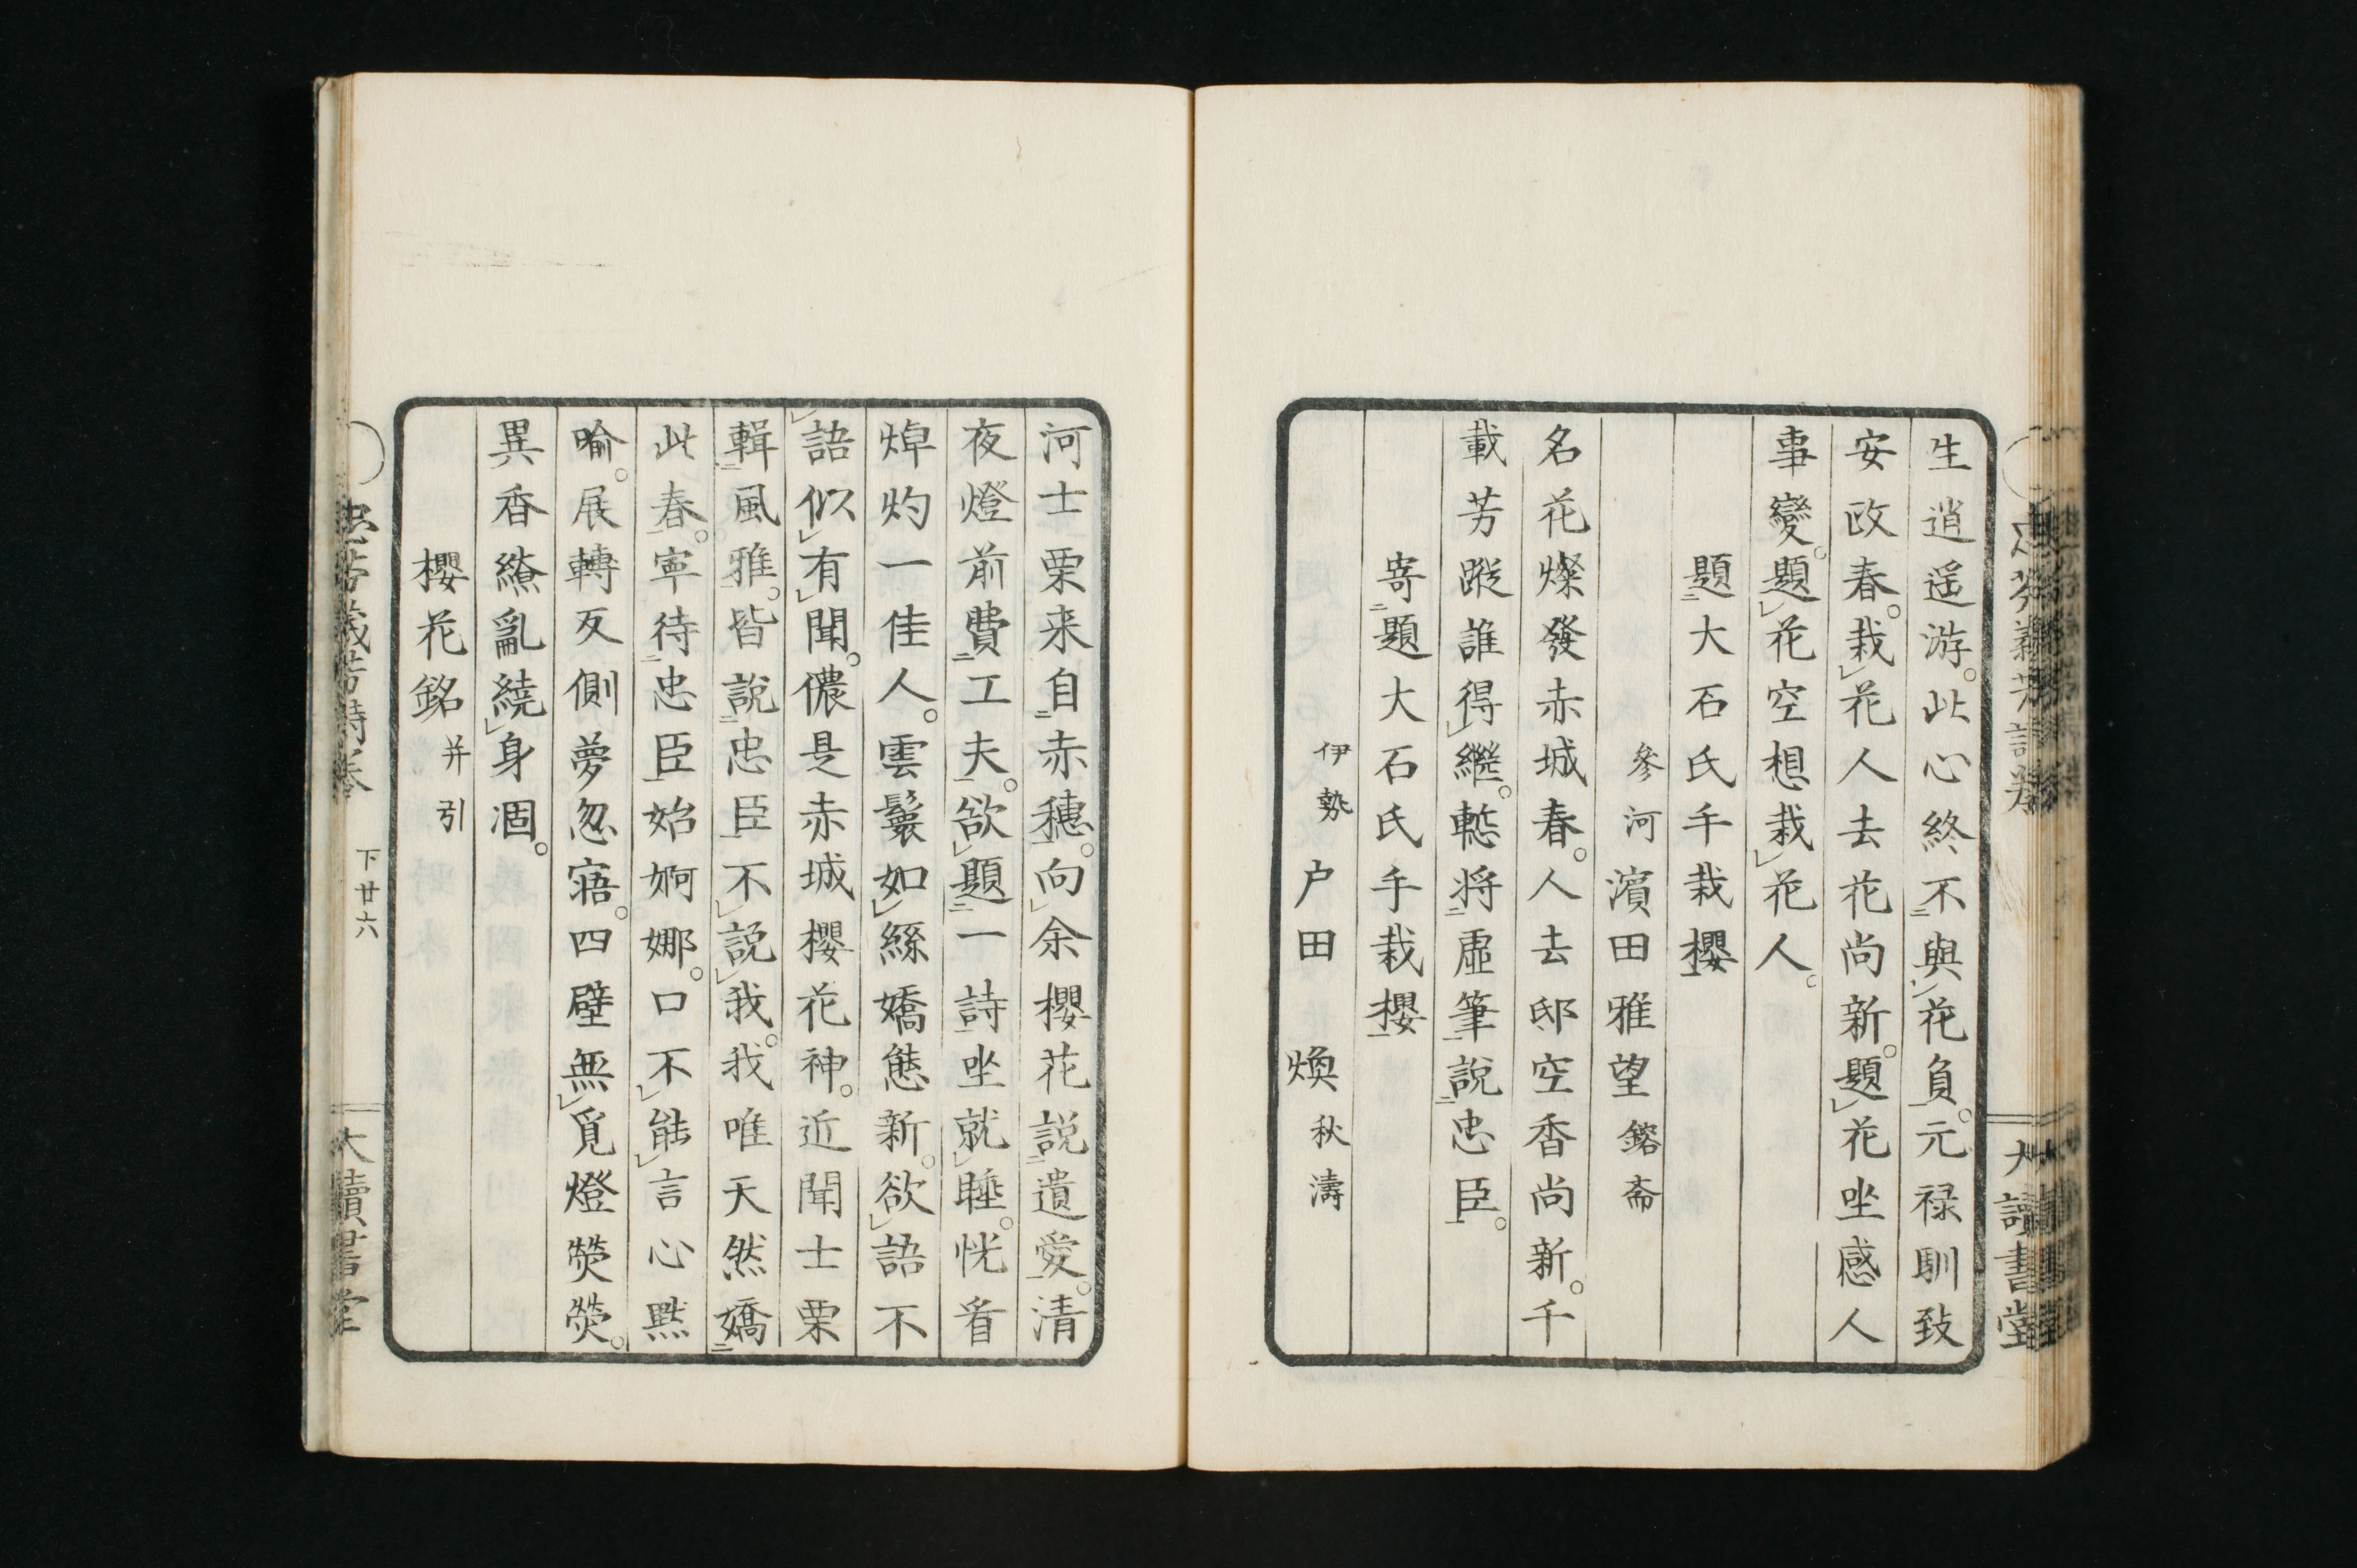 生逍遥游。此心終不與花負。元禄馴致
安政春。栽花人去花尚新。題花坐感人
事變。題花空想栽花人。
題大石氏手栽櫻
參河濵田雅望鎔斎
名花燦發赤城春。人去邸空香尚新。千
載芳蹤誰得繼。慙將虛筆說忠臣。
寄題大石氏手栽櫻
伊勢户田煥秋濤
河士栗来自赤穗。向余櫻花説遺愛。清
夜燈前費工夫。欲題一詩坐就睡。恍看
焯灼一佳人。雲鬟如絲嬌態新。欲語不
語似有聞。儂是赤城櫻花神。近聞士栗
輯風雅。皆説忠臣不説我。我唯天然嬌
此春。寧待忠臣始婀娜。口不能言心黙
喻。展轉反側夢忽寤。四壁無覓燈熒熒。
異香繚亂繞身涸。
櫻花銘并引
下廿六
大讀書堂